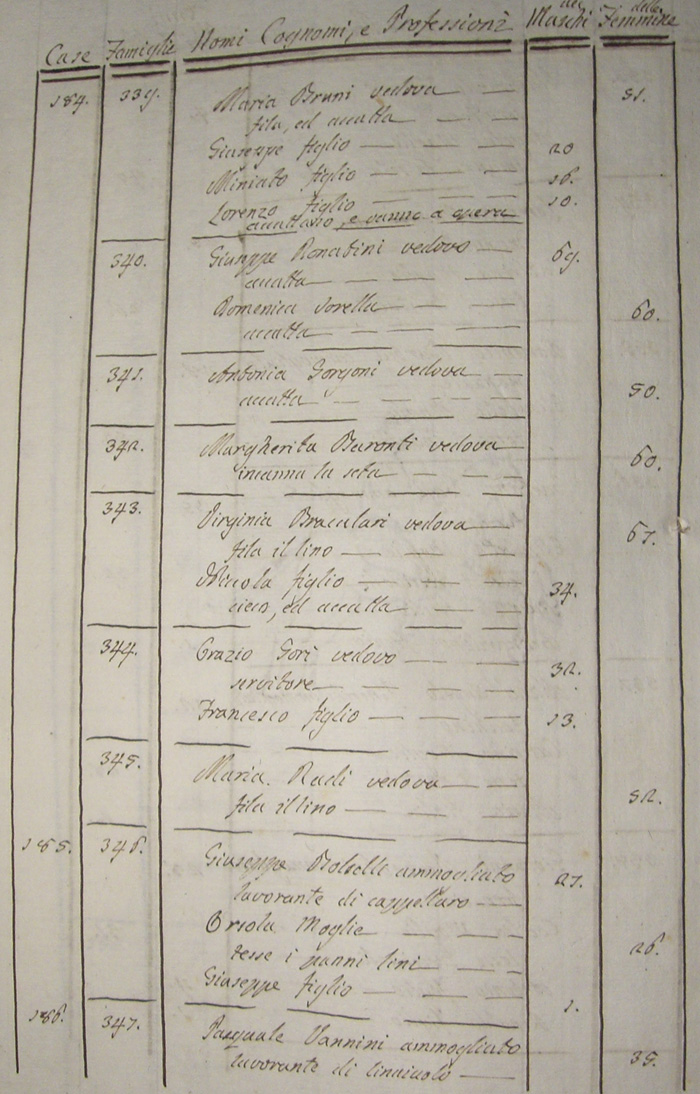 Case Famiglie Nomi Cognomi, e Professioni dei Maschi delle Femmine
184. 339. Maria Bruni vedova 51.
fila, ed accatta
Giuseppe figlio 20
Miniato figlio 16.
Lorenzo figlio 10.
accattano, e vanno a opera
340. Giuseppe Donatini vedovo 69.
accatta
Domenica sorella 60.
accatta
341. Antonia Gorgoni vedova 50.
accatta
342. Margherita Baronti vedova 60.
incanna la seta
343. Virginia Braculari vedova 67.
fila il lino
Niccola figlio 34.
cieco, ed accatta
344. Orazio Gori vedovo 32.
servitore
Francesco figlio 13.
345. Maria Radi vedova 52.
fila il lino
185. 346. Giuseppe ammogliato 27.
lavorante di cappellaro
Orsola Moglie 26.
tesse i panni lini
Giuseppe figlio 1.
186. 347. Pasquale Vannini ammogliato 35.
lavorante di